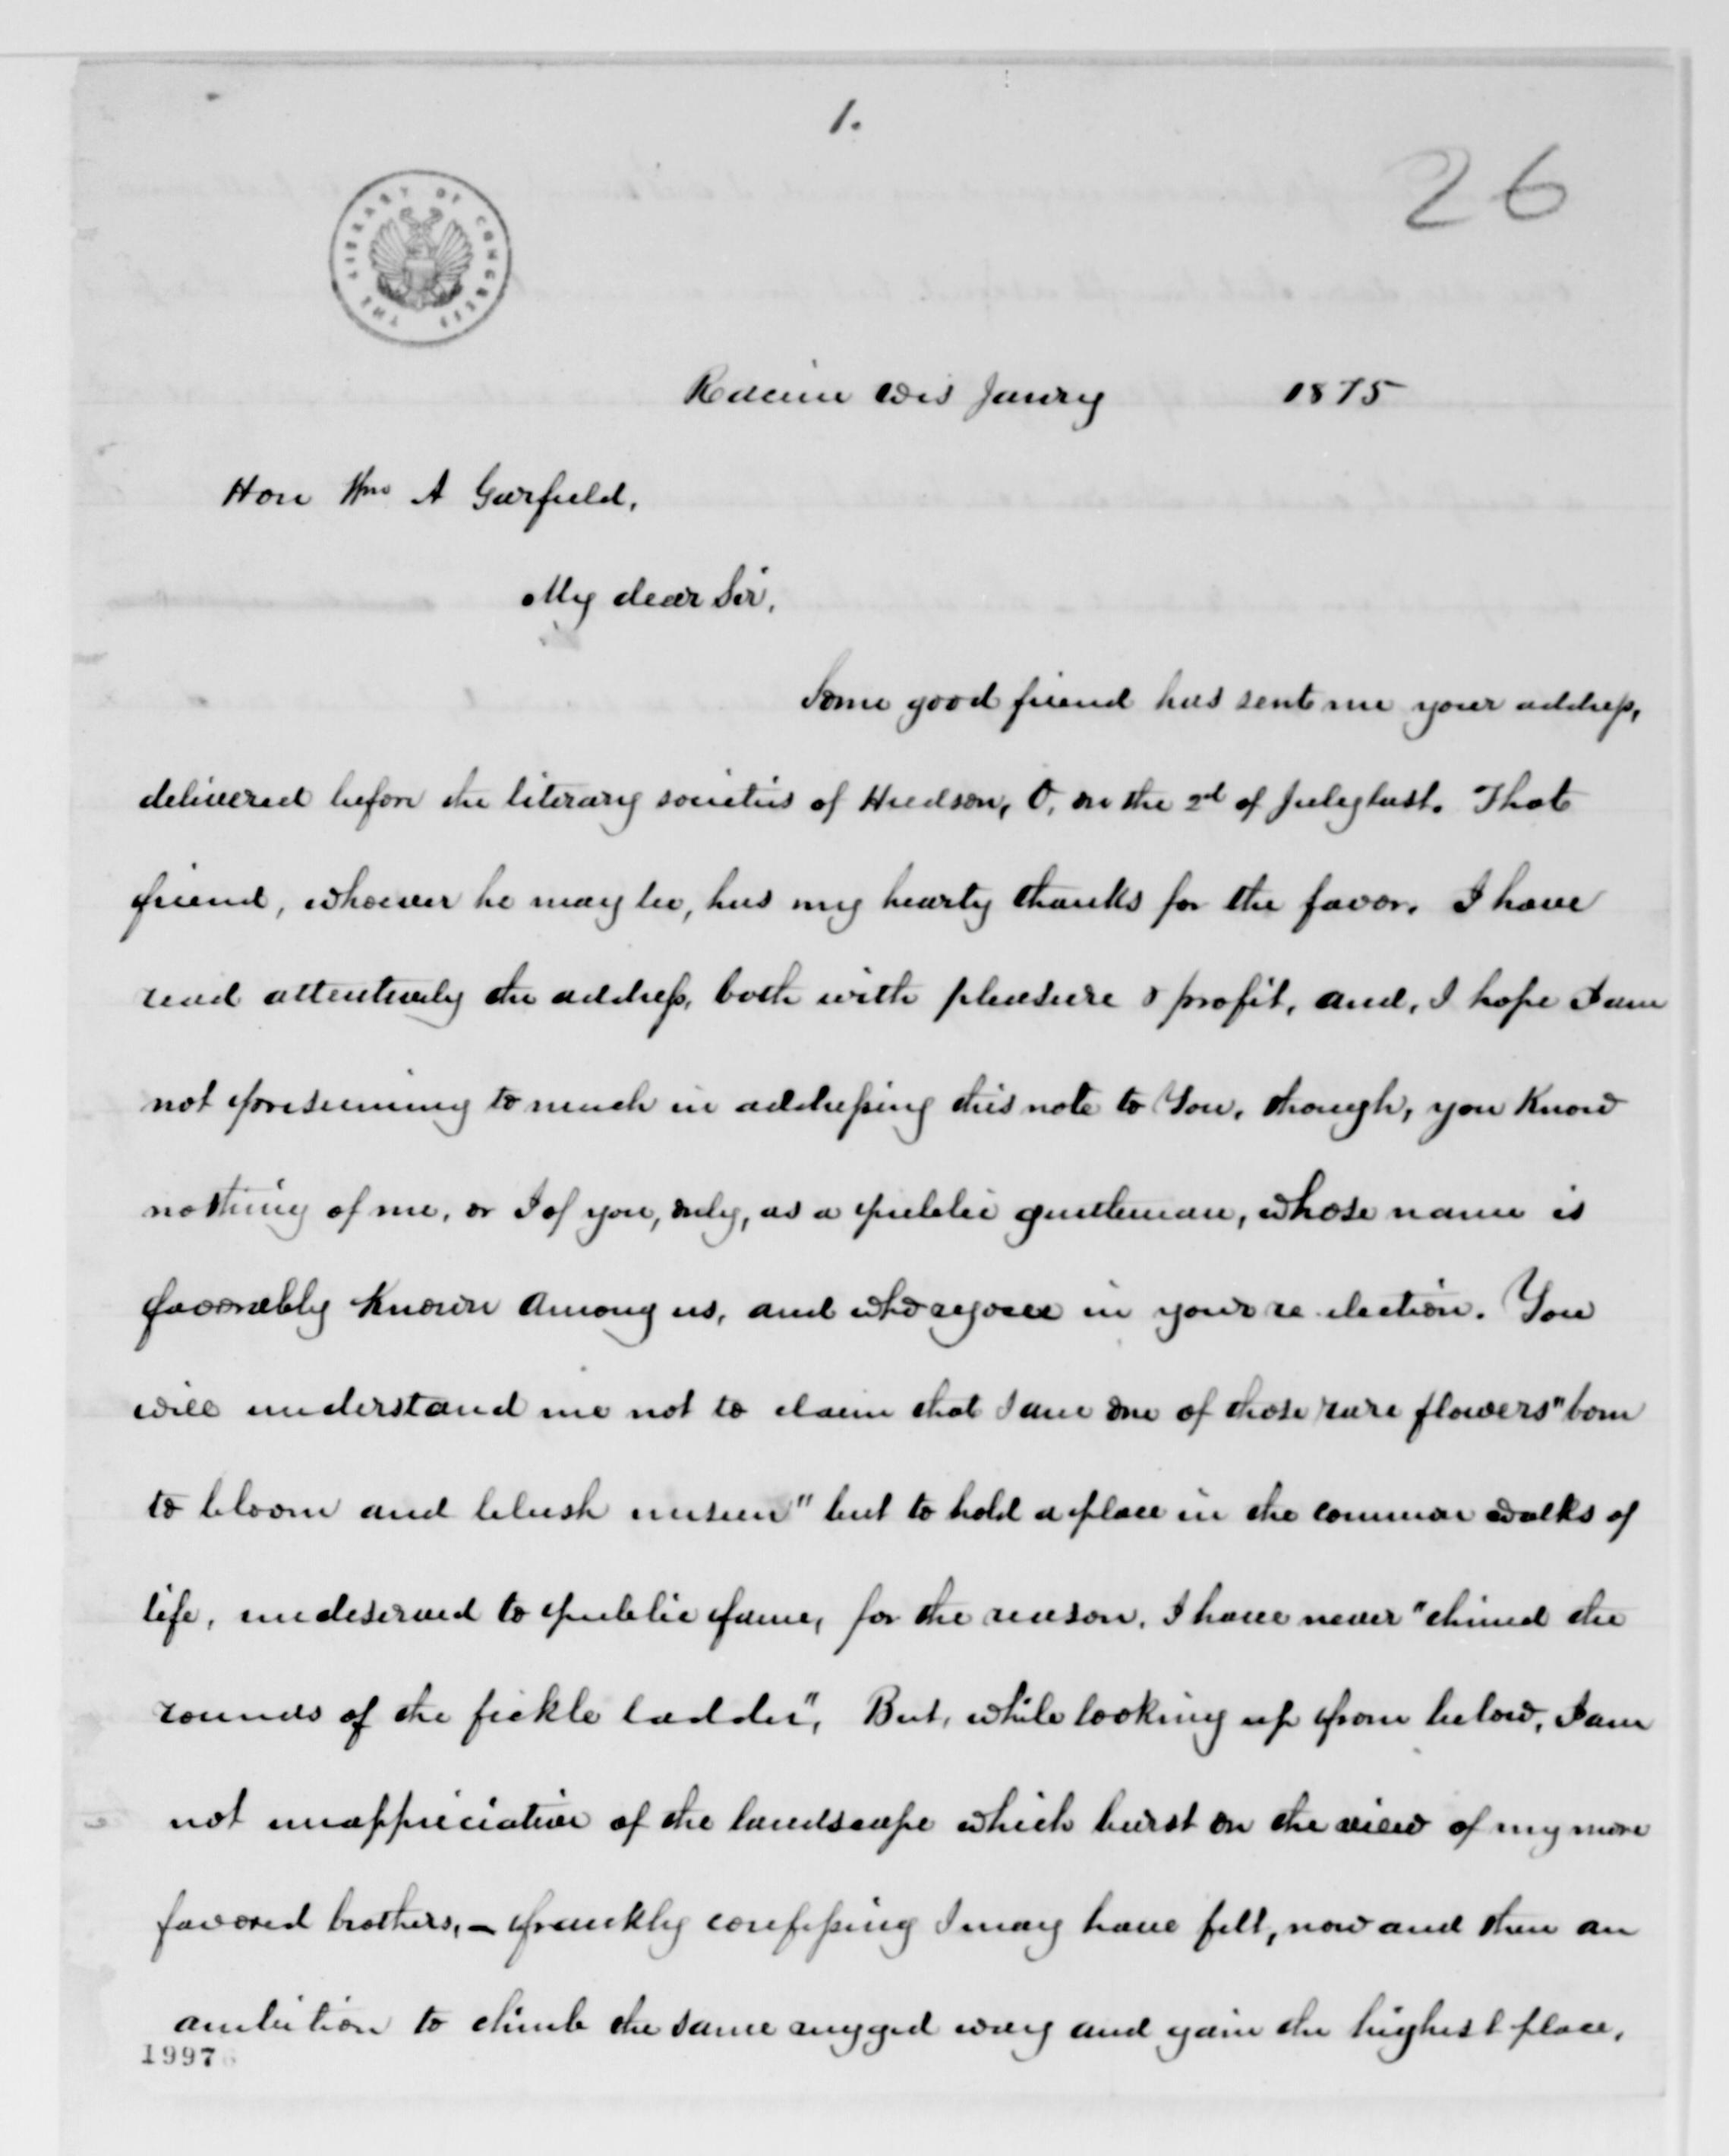 1.
26
THE LIBRARY OF CONGRESS
Racine Wis Janry 1875
Hon Wm A Garfield,
My dear Sir,
Some good friend has sent me your address,
delivered before the literary societies of Hudson, O, on the 2d of July last. That
friend, whoever he may be, has my hearty thanks for the favor. I have
read attentively the address, both with pleasure & profit, and, I hope I am
not presuming to much in addressing this note to You, though, you know
nothing of me, or I of you, only, as a public gentleman, whose name is
favorably known among us, and who rejoice in your re election. You
will understand me not to claim that I am one of those rare flowers "born
to bloom and blush unseen" but to hold a place in the common walks of
life, undeserved to public fame, for the reason, I have never "climed the
rounds of the fickle ladder", But, while looking up from below, I am
not unappreciative of the landscape which burst on the view of my more
favored brothers, - frankly confessing I may have felt, now and then an
ambition to climb the same rugged way and gain the highest place,
1997